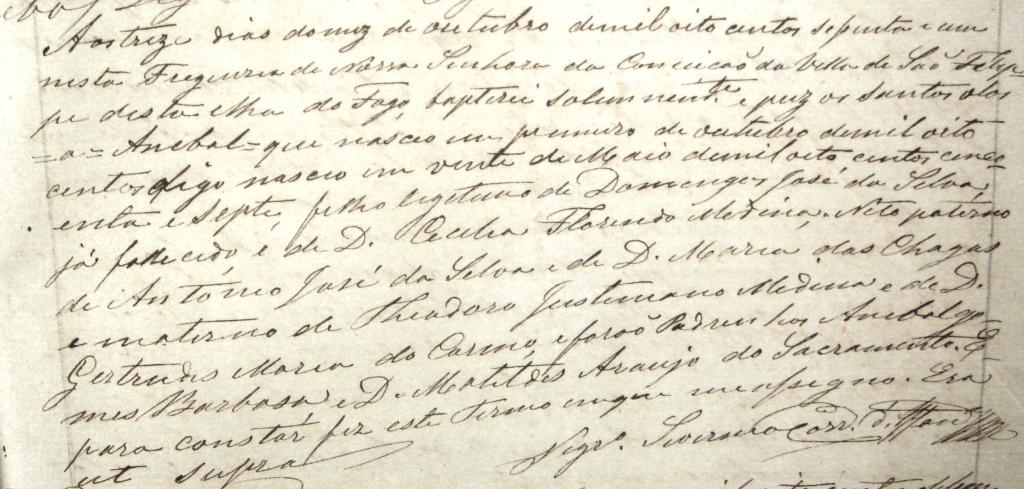 Aos treze dias do mez de outubro de mil oito centos septenta e um
nesta Freguezia de Nossa Senhora da Conceicão da Villa de São Felip-
pe desta ilha do Fogo, baptizei solemnemt.e e puz os santos olos
=a= Anebal= que nasceo em primeiro de outubro de mil oito
centos digo nasceo em vente de Maio de mil oito centos cinco-
enta e septe, filho legitimo de Domengos José da Silva,
já fallecido, e de D. Cecilia Florindo Medina. Neto paterno
de António José da Silva e de D. Maria das Chagas
e materno de Theodoro Justiniano Medina e de D.
Gertrudes Maria do Carmo, e forão Padrinhos Anebal Go-
mes Barbosa e D. Matildes Araujo do Sacramento. E
para constar fiz este Termo em que me assegno. Era
ut supra
Vigr.o Severino